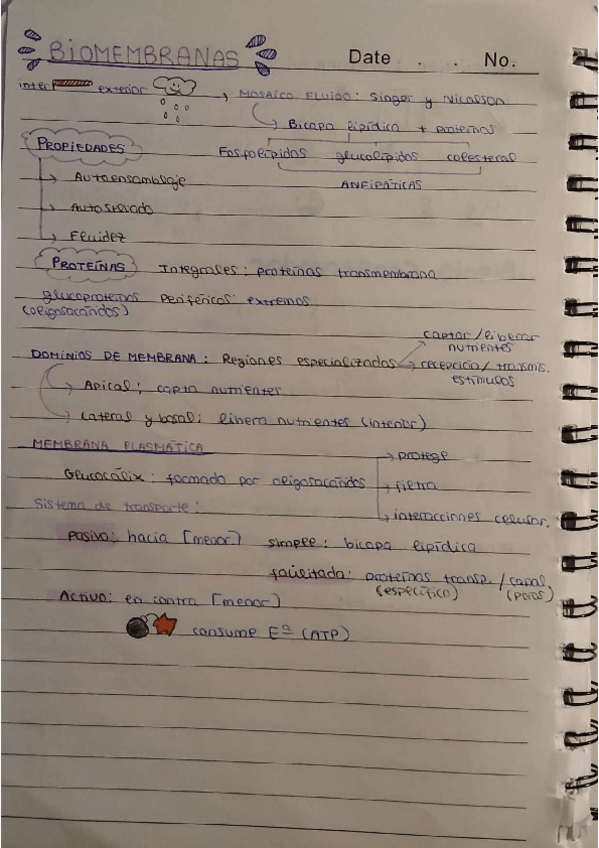 BIOMEMBRANAS
Date . . No.
exterior → MOSAICO FLUIDO: Singer y Nicolson
→ Bicapa lipídica + proteínas
PROPIEDADES
Fosfolípidos glucolípidos colesterol
→ Autoensamblaje
ANFIPÁTICAS
→ Autosellado
→ Fluidez
PROTEÍNAS Integrales: proteínas transmembrana
glucoproteínas Periféricas: extremos
(oligosacáridos)
captar/liberar
nutrientes
DOMINIOS DE MEMBRANA: Regiones especializadas → recepción/transmis.
estímulos
→ Apical: capta nutrientes
→ Lateral y basal: libera nutrientes (interior)
MEMBRANA PLASMÁTICA
→ protege
Glucocálix: formado por oligosacáridos → filtra
Sistema de transporte:
→ interacciones celular.
Pasivo: hacia [menor] simple: bicapa lipídica
facilitada: proteínas transp. / canal
(específico) (poros)
Activo: en contra [menor]
consume Eª (ATP)